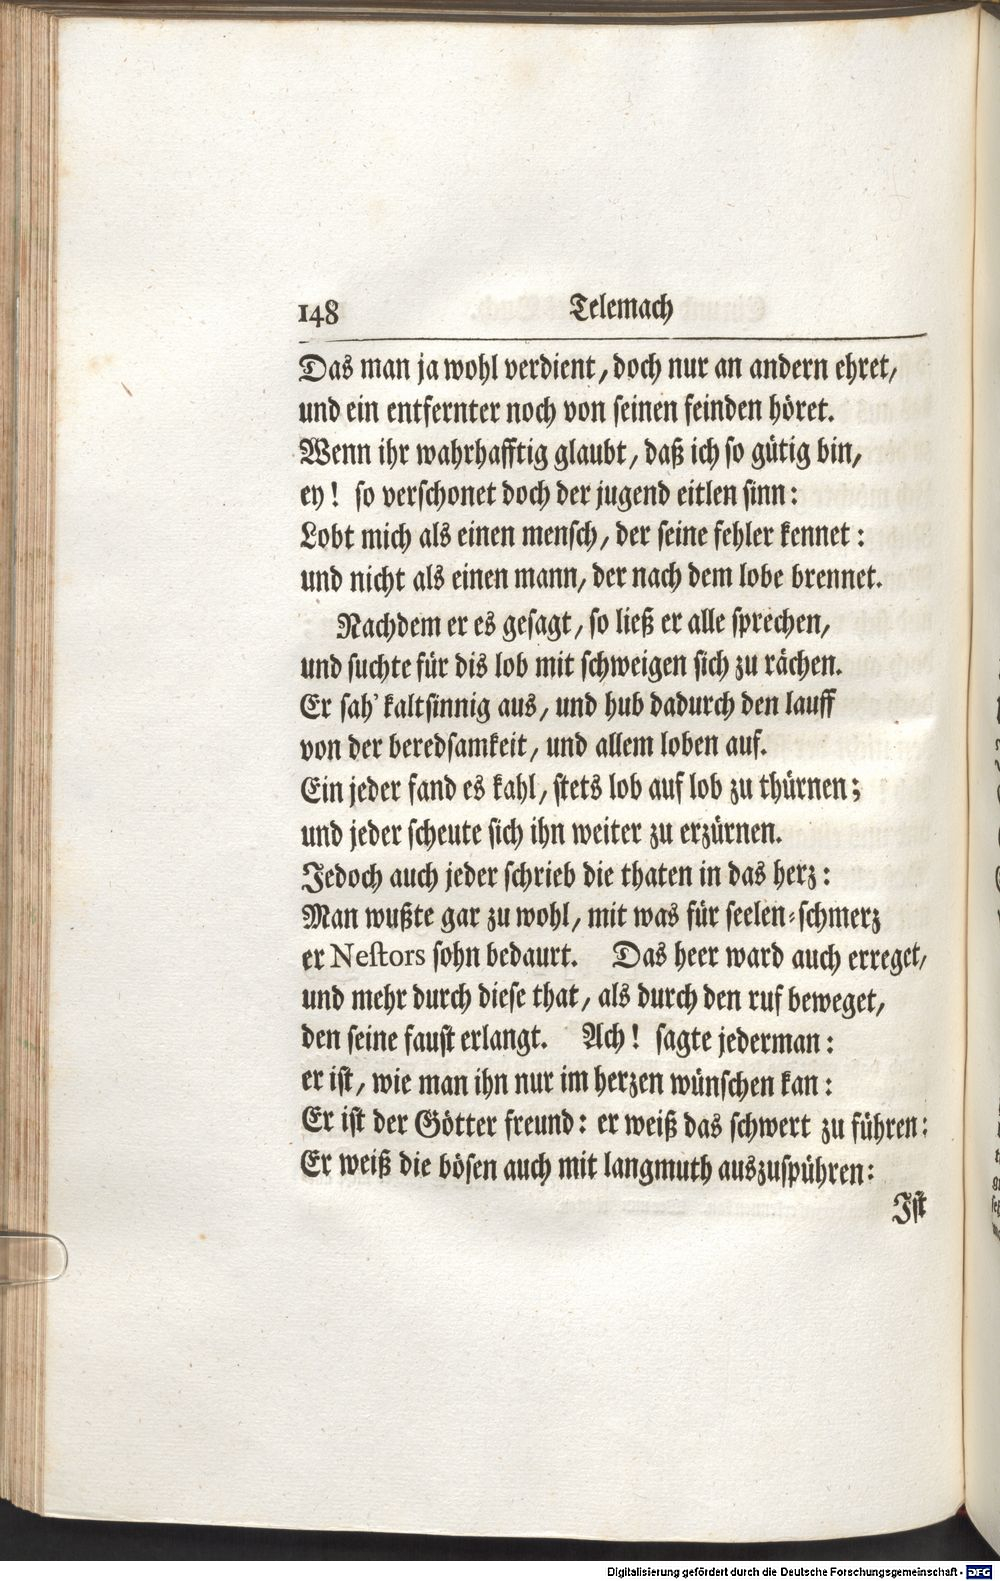 148 Telemach
Das man ja wohl verdient, doch nur an andern ehret,
und ein entfernter noch von seinen feinden höret.
Wenn ihr wahrhafftig glaubt, daß ich so gütig bin,
ey! so verschonet doch der jugend eitlen sinn:
Lobt mich als einen mensch, der seine fehler kennet:
und nicht als einen mann, der nach dem lobe brennet.
Nachdem er es gesagt, so ließ er alle sprechen,
und suchte für dis lob mit schweigen sich zu rächen.
Er sah' kaltsinnig aus, und hub dadurch den lauff
von der beredsamkeit, und allem loben auf.
Ein jeder fand es kahl, stets lob auf lob zu thürnen;
und jeder scheute sich ihn weiter zu erzürnen.
Jedoch auch jeder schrieb die thaten in das herz:
Man wußte gar zu wohl, mit was für seelen-schmerz
er Nestors sohn bedaurt. Das heer ward auch erreget,
und mehr durch diese that, als durch den ruf beweget,
den seine faust erlangt. Ach! sagte jederman:
er ist, wie man ihn nur im herzen wünschen kan:
Er ist der Götter freund: er weiß das schwert zu führen:
Er weiß die bösen auch mit langmuth auszuspühren:
Ist
Digitalisierung gefördert durch die Deutsche Forschungsgemeinschaft - DFG